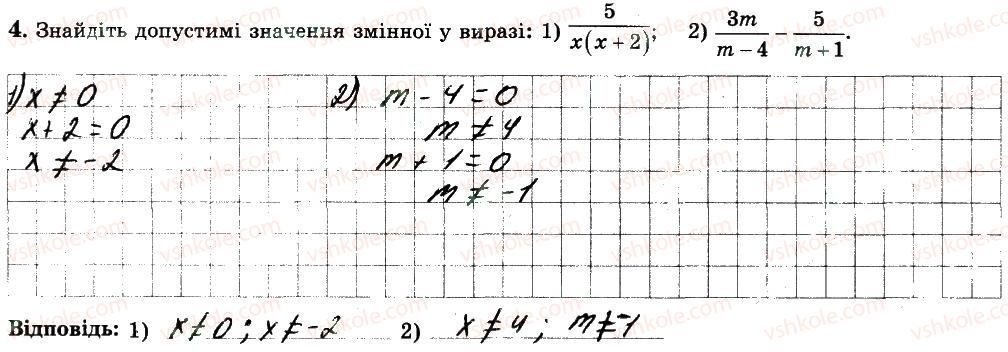 4. Знайдіть допустимі значення змінної у виразі: 1) 5/(x(x + 2)); 2) 3m/(m − 4) − 5/(m + 1).
1) x ≠ 0
x + 2 = 0
x ≠ −2
2) m − 4 = 0
m ≠ 4
m + 1 = 0
m ≠ −1
Відповідь: 1) x ≠ 0 ; x ≠ −2 2) x ≠ 4 ; m ≠ −1
vshkole.com